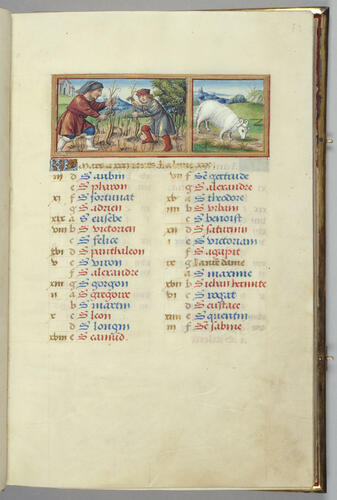 Mars a xxxi iours La lune xxx
iii d S aubin
e S pharon
xi f S fortunat
g S adrien
xix a S eusebe
viii b S victorien
c S felice
xvi d S panthaleon
v e S viron
f S alexandre
xiii g S gorgon
ii a S gregoire
b S martin
x c S leon
d S longin
xviii e S
vii f Sᵉ gertrude
g S alexandre
xv a S theodore
iiii b S urbain
c S benoist
xii d S saturnin
i e S victorian
f S agapit
ix g dame
a S maxime
xvii b S
vi c S rogat
d S eustace
xiiii e S quentin
iii f Sᵉ sabine